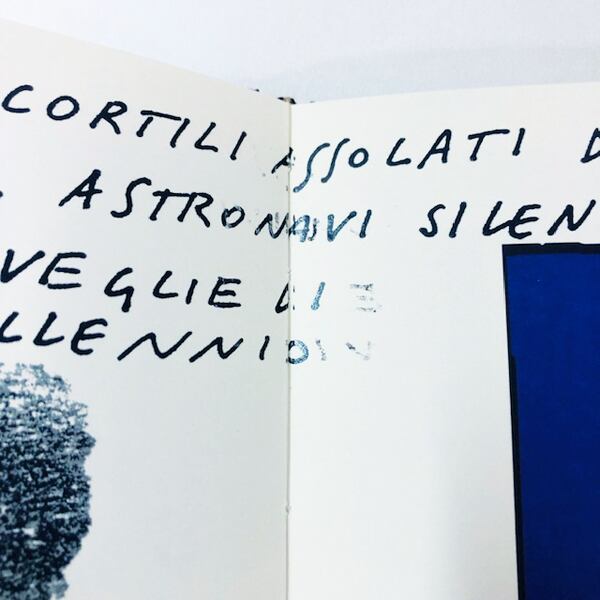 CORTILI ASSOLATI D
ASTRONAVI SILEN
VEGLIE DI
LLENNIO